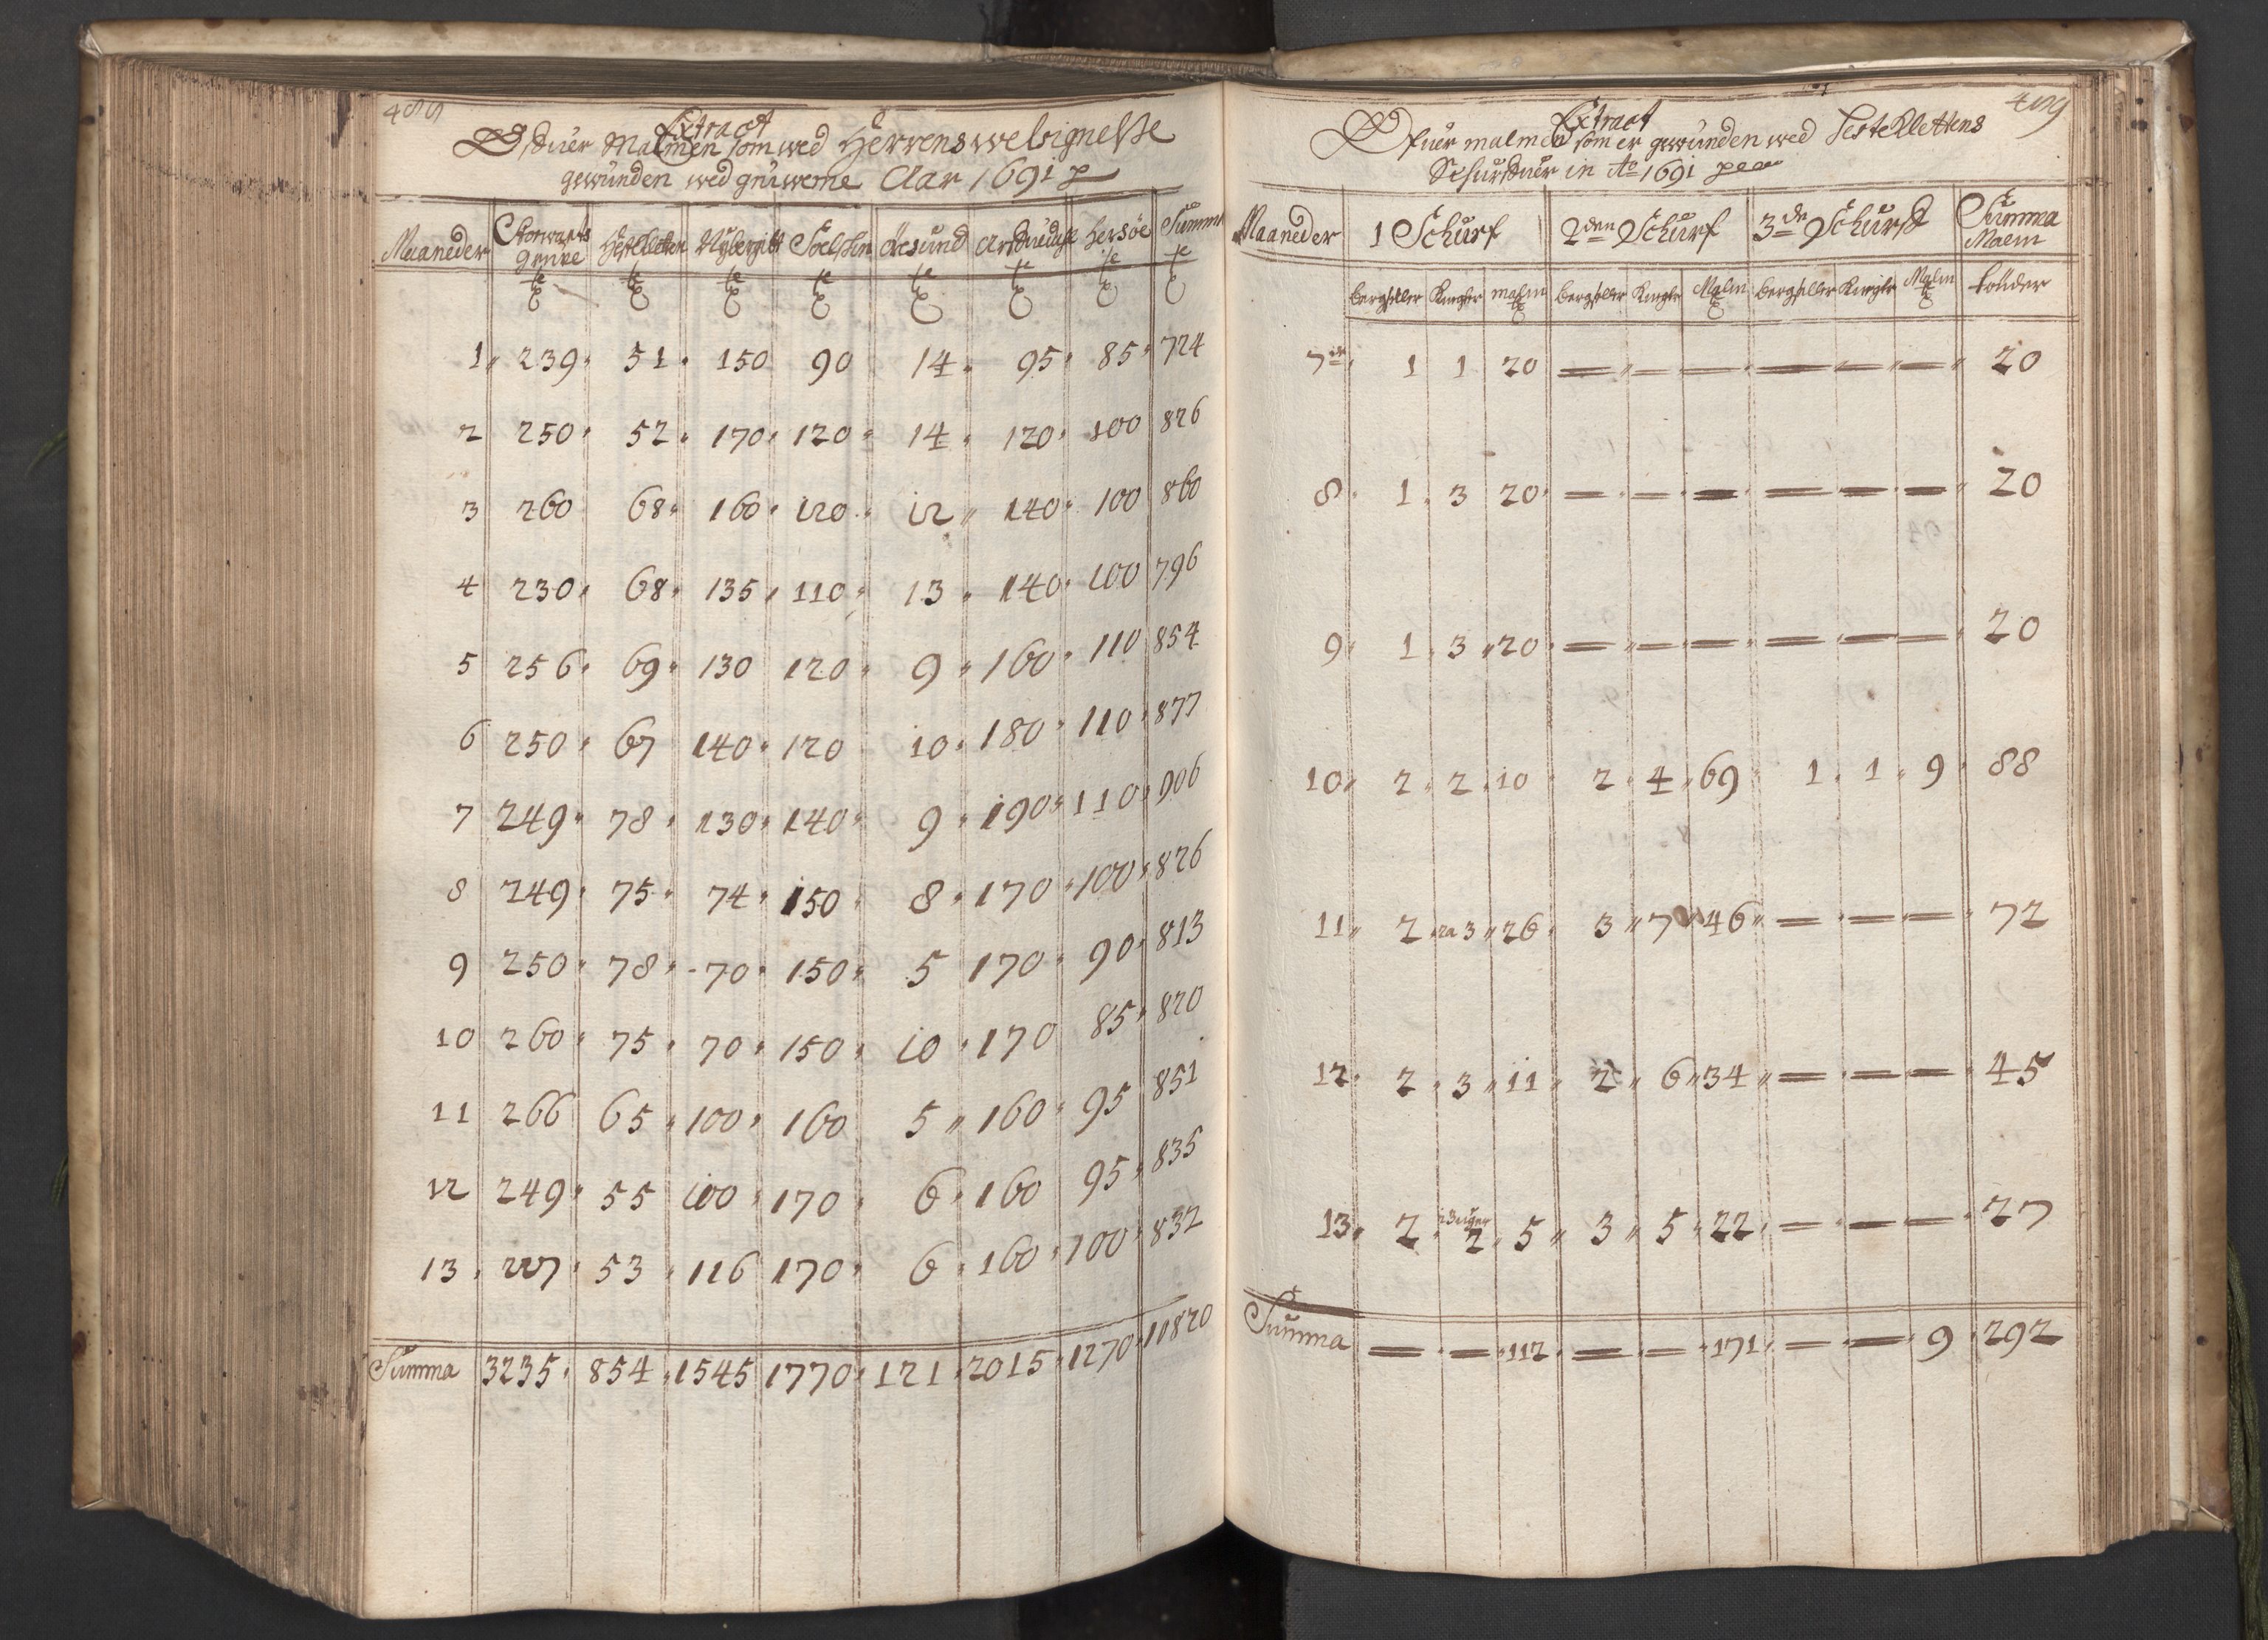 Extract
Ofwer Malmen som wed Herrens welsignelsse
gewünden wed grüwerne Aar 1691
Maaneder Storwarts Grube Hesteklettene Nÿbergitt Soelskin Aresund Arfwedahl Hersöe Summa
1 239 51 150 90 14 95 85 724
2 250 52 170 120 14 120 100 826
3 260 68 160 120 12 140 100 860
4 230 68 135 110 13 140 100 796
5 256 69 130 120 9 160 110 854
6 250 67 140 120 10 180 110 877
7 249 78 130 140 9 190 110 906
8 249 75 74 150 8 170 100 826
9 250 78 70 150 5 170 90 813
10 260 75 70 150 10 170 85 820
11 266 65 100 160 5 160 95 851
12 249 55 100 170 6 160 95 835
13 227 53 116 170 6 160 100 832
Summa 3235 854 1545 1770 121 2015 1270 10820
489
Extract
Ofwer malmen som er gewünden wed Hesteklettens
Schurfwer in Ao 1691
Maaneder 1 Schurf 2den Schurf 3de Schurf Summa Malm
bergseller Knegter malm bergseller Knegte Malm bergseller Knegte Malm tönder
7de 1 1 20 — — — — — — 20
8 1 3 20 — — — — — — 20
9 1 3 20 — — — — — — 20
10 2 2 10 2 4 69 1 1 9 88
11 2 3 26 3 7 46 — — — 72
12 2 3 11 2 6 34 — — — 45
13 2 2 5 3 5 22 — — — 27
Summa — — 112 — — 171 — — 9 292